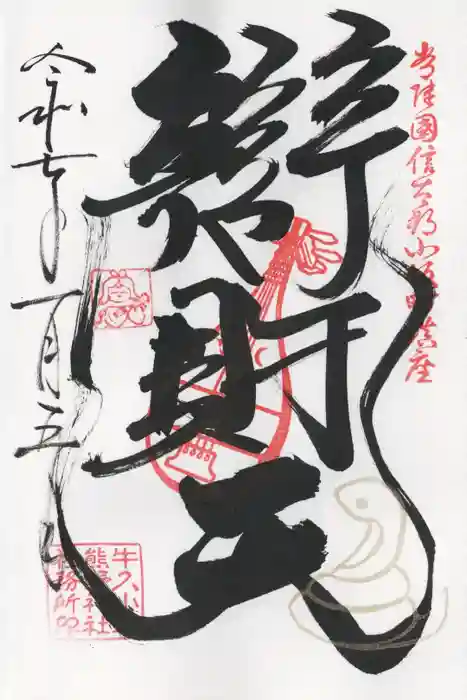 常陸國信太郡小坂村鎮座
辯財天
令和七年一月五日
牛久小坂
熊野神社
社務所印